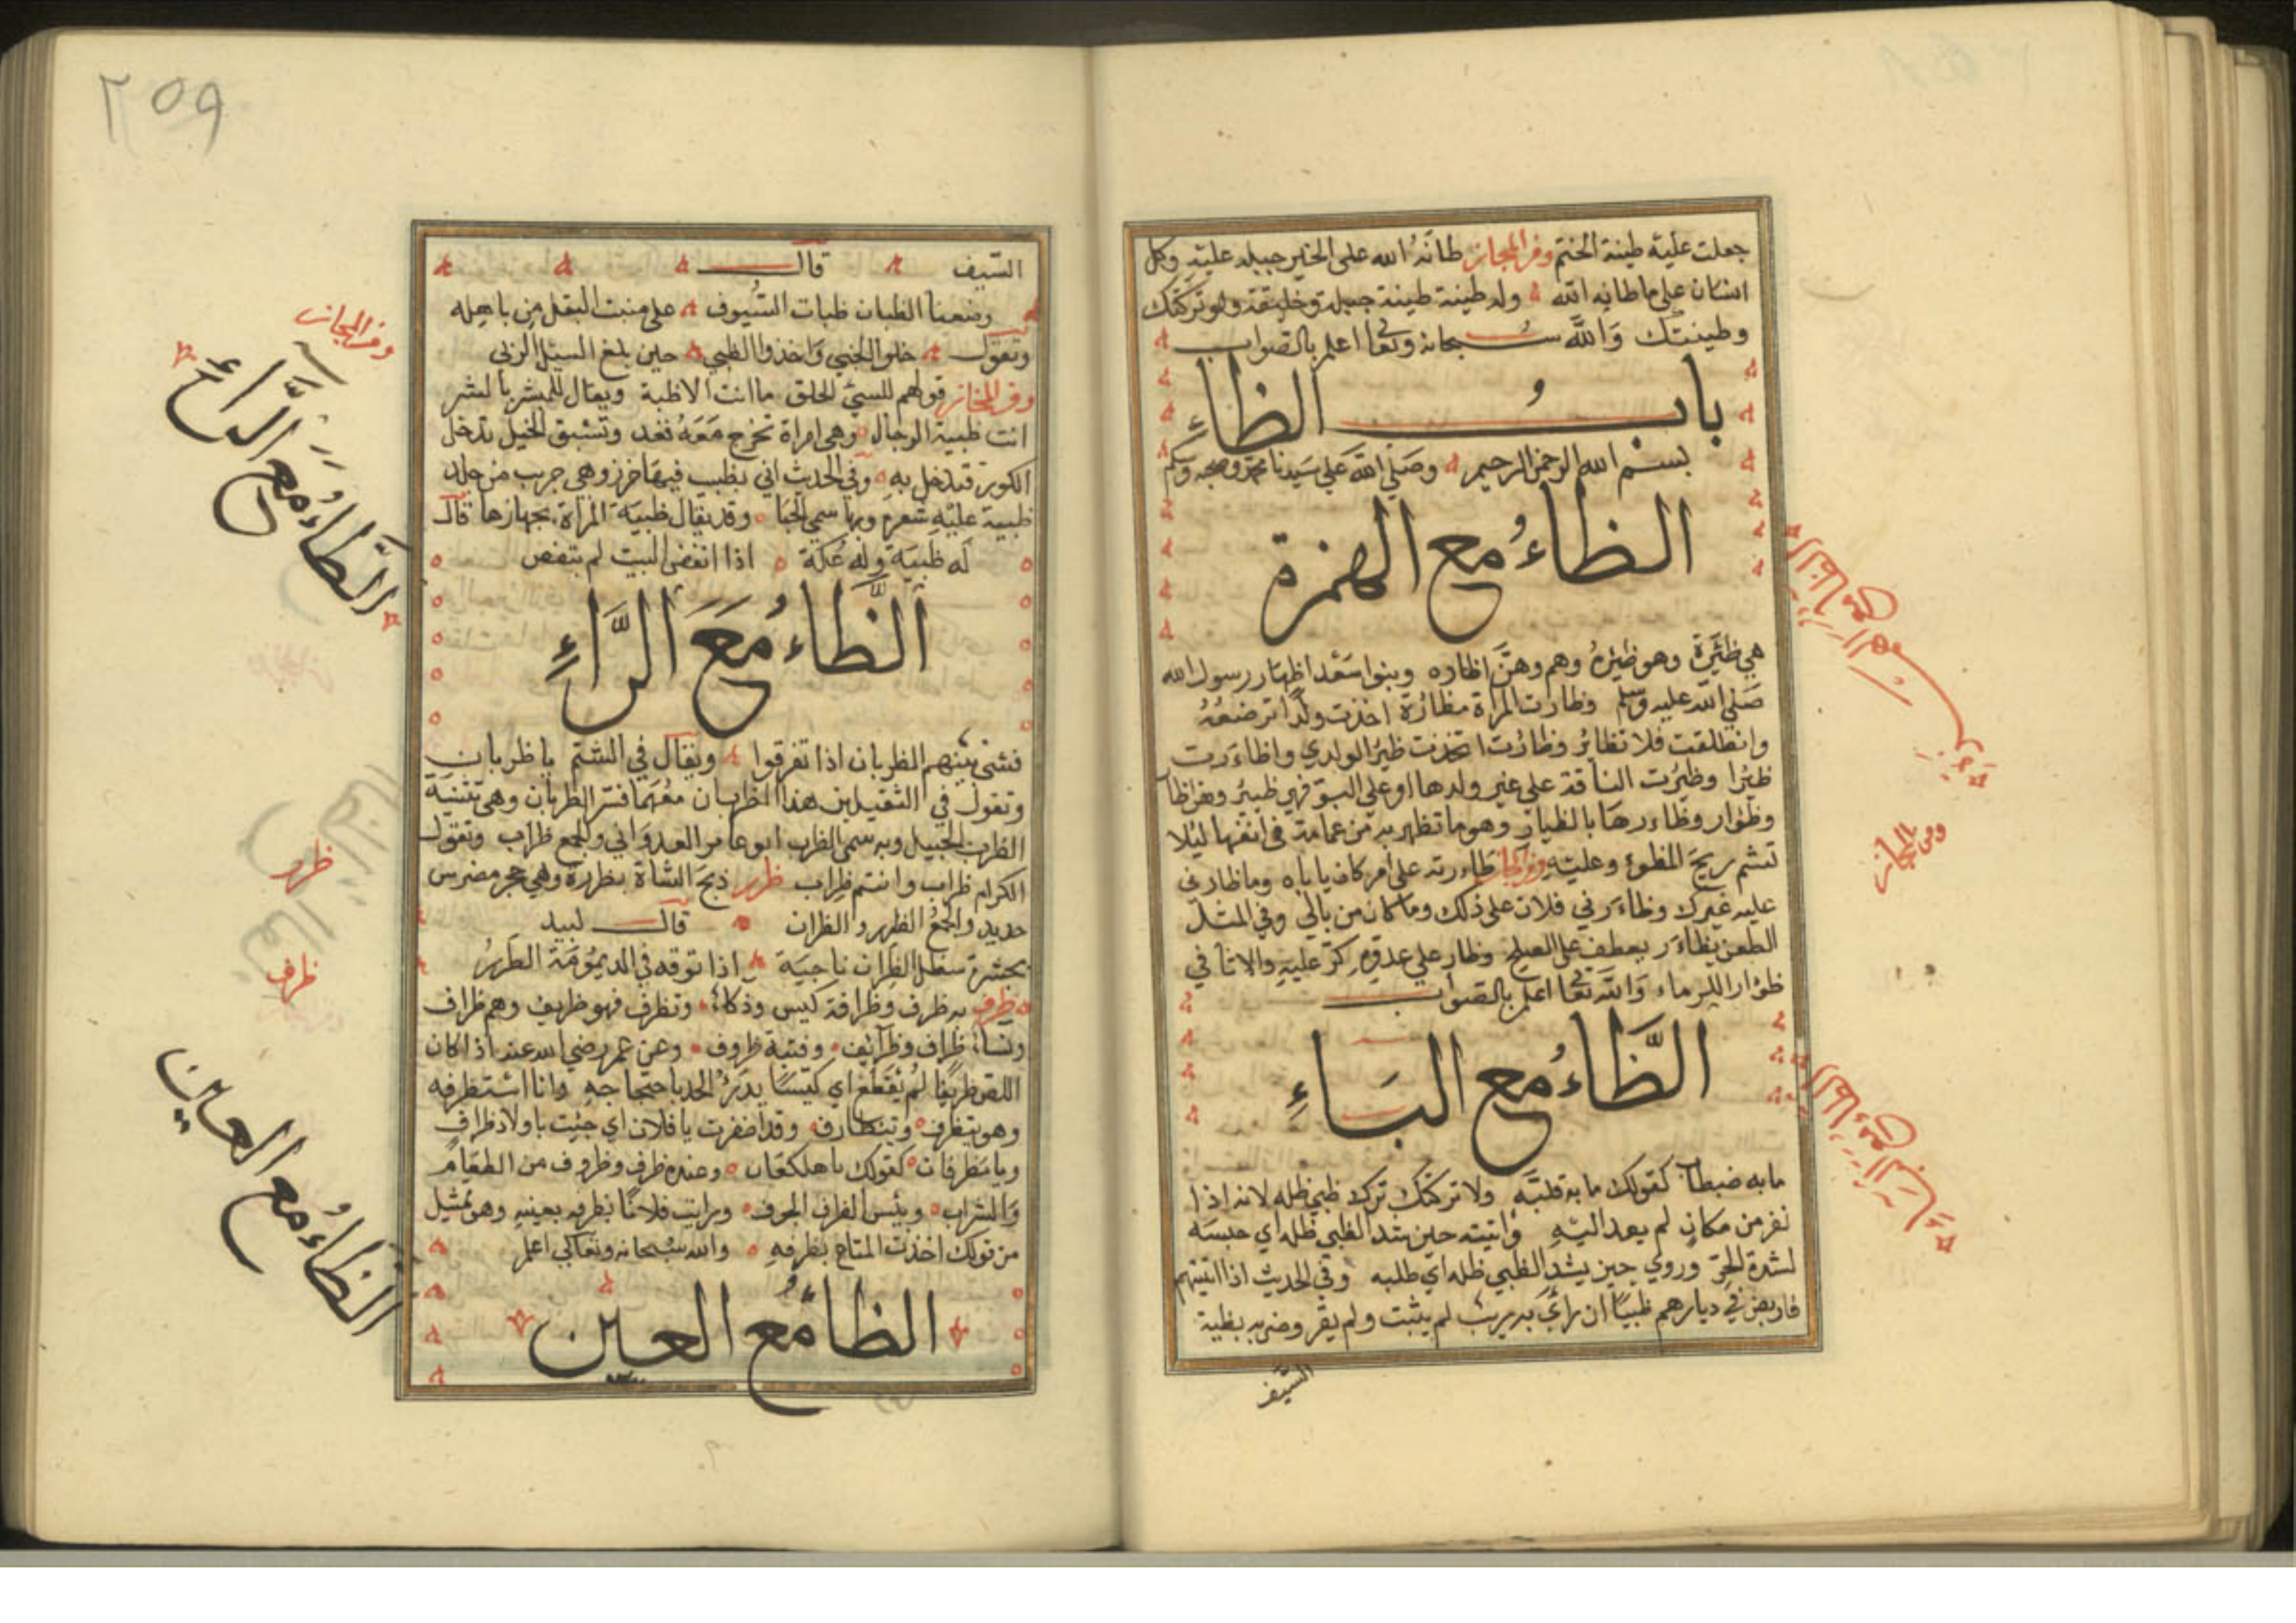 جعلت عليه طينة الختم وفي المجاز طانه الله على الخير جبله عليه وكل
انسان على ما طانه الله وله طينة طينة جبلة وخليقة ولو تركتك
وطينتك والله سبحانه وتعا اعلم بالصواب
باب الظاءِ
بسم الله الرحمن الرحيم وصلى الله على سيدنا محمد وصحبه وسلم
الظاءُ مع الهمزة
هي ظئره وهو ظئره وهم وهن اظاره وبنوا سعد اظار رسول الله
صلى الله عليه وسلم وظارت المراة مظارة اخذت ولدا ترضعه
وانطلقت فلانة تظائر وظارت اتخذت ظئرا لولدي واظاءرت
ظئرا وظئرت الناقة على غير ولدها او على البو فهي ظئر وهن ظا
وظوار وظاءرها بالظيار وهو ما تظار به من عمامة في انفها ليلا
تشم ريح المظور وعليه وفي المجاز ظاءرته على امر كان ياباه وما ظارني
عليه غيرك وظاءرني فلان على ذلك وما كان من بالي وفي المثل
الطعن يظاءر يعطف على الصلح وظار على عدوه كر عليه والاثافي
ظوار للرماد والله تعا اعلم بالصواب
الظَّاءُ مع البَاءِ
ما به ظبظاب كقولك ما به قلبة ولا تركنك ترك ظبي ظله لانه اذا
نفر من مكان لم يعد اليه واتيته حين شد الظبي ظله اي حبسه
لشدة الحر وروي حين ينشد الظبي ظله اي طلبه وفي الحديث اذا اتيتهم
فاربض في ديارهم ظبيا ان رأى بريب لم يثبت ولم يقر وضربه بظبة
السيف
ومن المجاز
٢٥٩
السيف قال
وضعنا الظبات ظبات السيوف على منبت البقل من باهله
وتقول خلوا الجنبي واخذوا الظبي حين بلغ السيل الزبى
وفي المجاز قولهم للسيئ الخلق ما انت الا ظبة ويقال للمبشر بالشر
انت ظبية الدجال وهي امراة تخرج معه تعد وتسبق الخيل تدخل
الكور فتدخل به وفي الحديث اتي بظبية فيها خرز وهي جرب من جلد
ظبية عليه شعره وبها سمي الحيا وقد يقال ظبية المراة بجهازها قال
له ظبية وله عكة اذا انفض البيت لم ينفض
الظَّاءُ مَعَ الرَّاءِ
فشى بينهم الظربان اذا تفرقوا ويقال في الشتم يا ظربان
وتقول في الثقيلين هذان الظربان معهما فسر الظربان وهي تثنية
الظرب الجبيل وبه سمي الظرب ابو عامر العدواني والجمع ظراب وتقول
الكرام ظراب وانتم ظراب ظرر ذبح الشاة بظررة وهي حجر مضرس
حديد والجمع الظرر والظران قال لبيد
بجسرة تنجل الظران ناجية اذا توقد في الديمومة الظرر
ظرف به ظرف وظرافة كيس وذكاء وتظرف فهو ظريف وهم ظراف
ونساء ظراف وظرائف وفتية ظروف وعن عمر رضي الله عنه اذا كان
اللص ظريفا لم يقطع اي كيسا يدرؤ الحد باحتجاجه وانا استظرفه
وهو يتظرف ويتظارف وقد اظرفت يا فلان اي جئت باولاد ظراف
ويا مظرفان كقولك يا ملكعان وعنده ظرف وظروف من الطعام
والشراب وبئس الظرف الجوف ورايت فلانا بظرفه بعينه وهو تمثيل
من قولك اخذت المتاع بظرفه والله سبحانه وتعالى اعلم
الظاءُ مع العين
وفي المجاز
الظَّاءُ مَعَ الرَّاءِ
ظرر
ظرف
الظاءُ مع العين